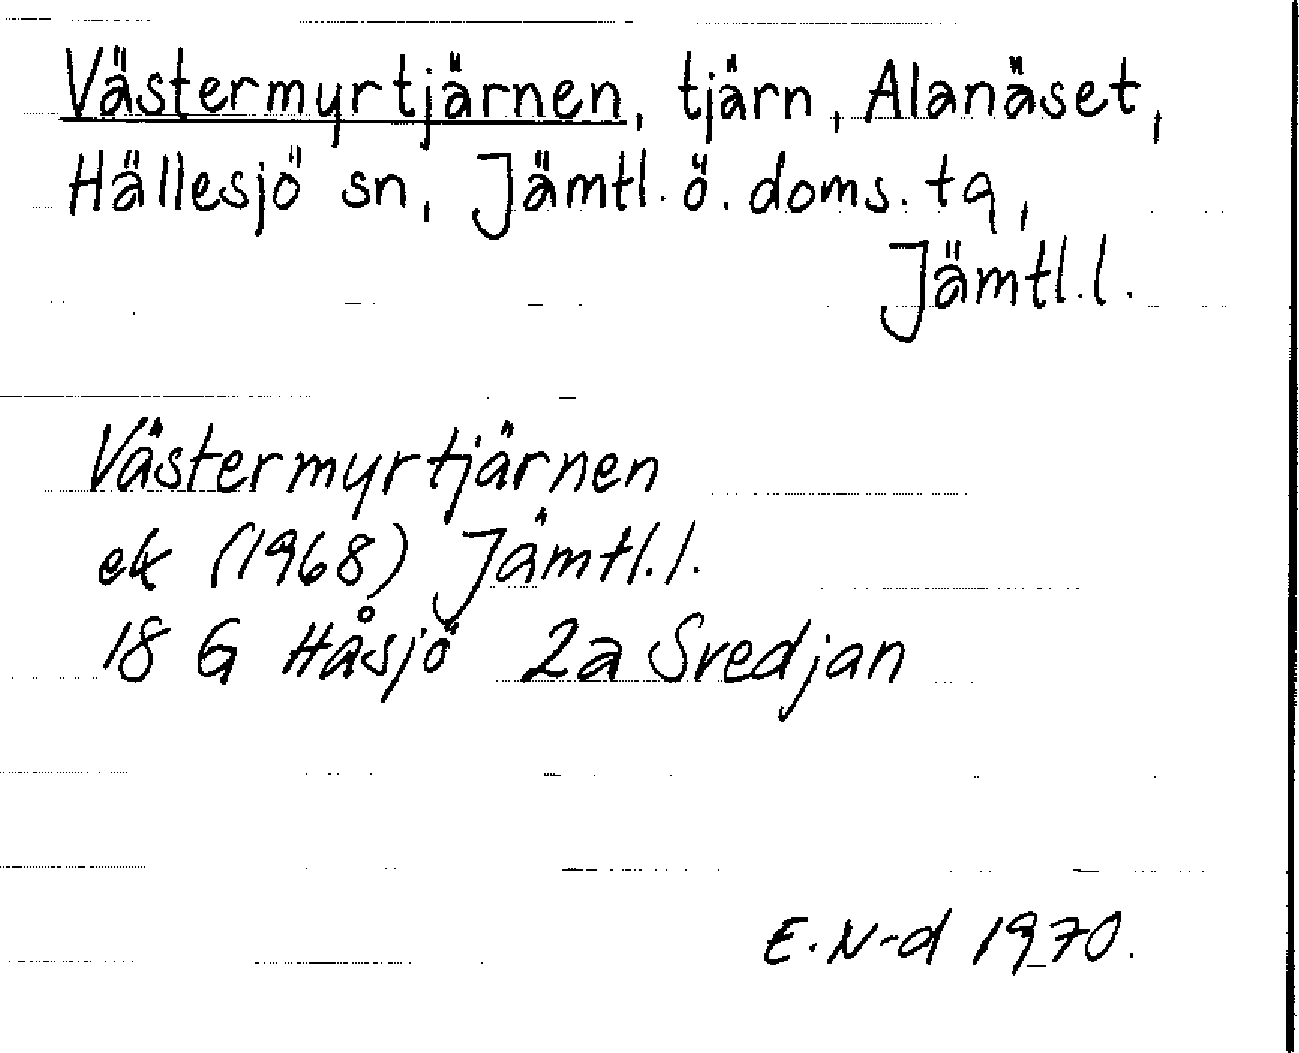 Västermyrtjärnen, tjärn, Alanäset,
Hällesjö sn, Jämtl. ö. doms. tg,
Jämtl. l.
Västermyrtjärnen
ek (1968) Jämtl. l.
18 G Håsjö 2a Svedjan
E. N-d 1970.